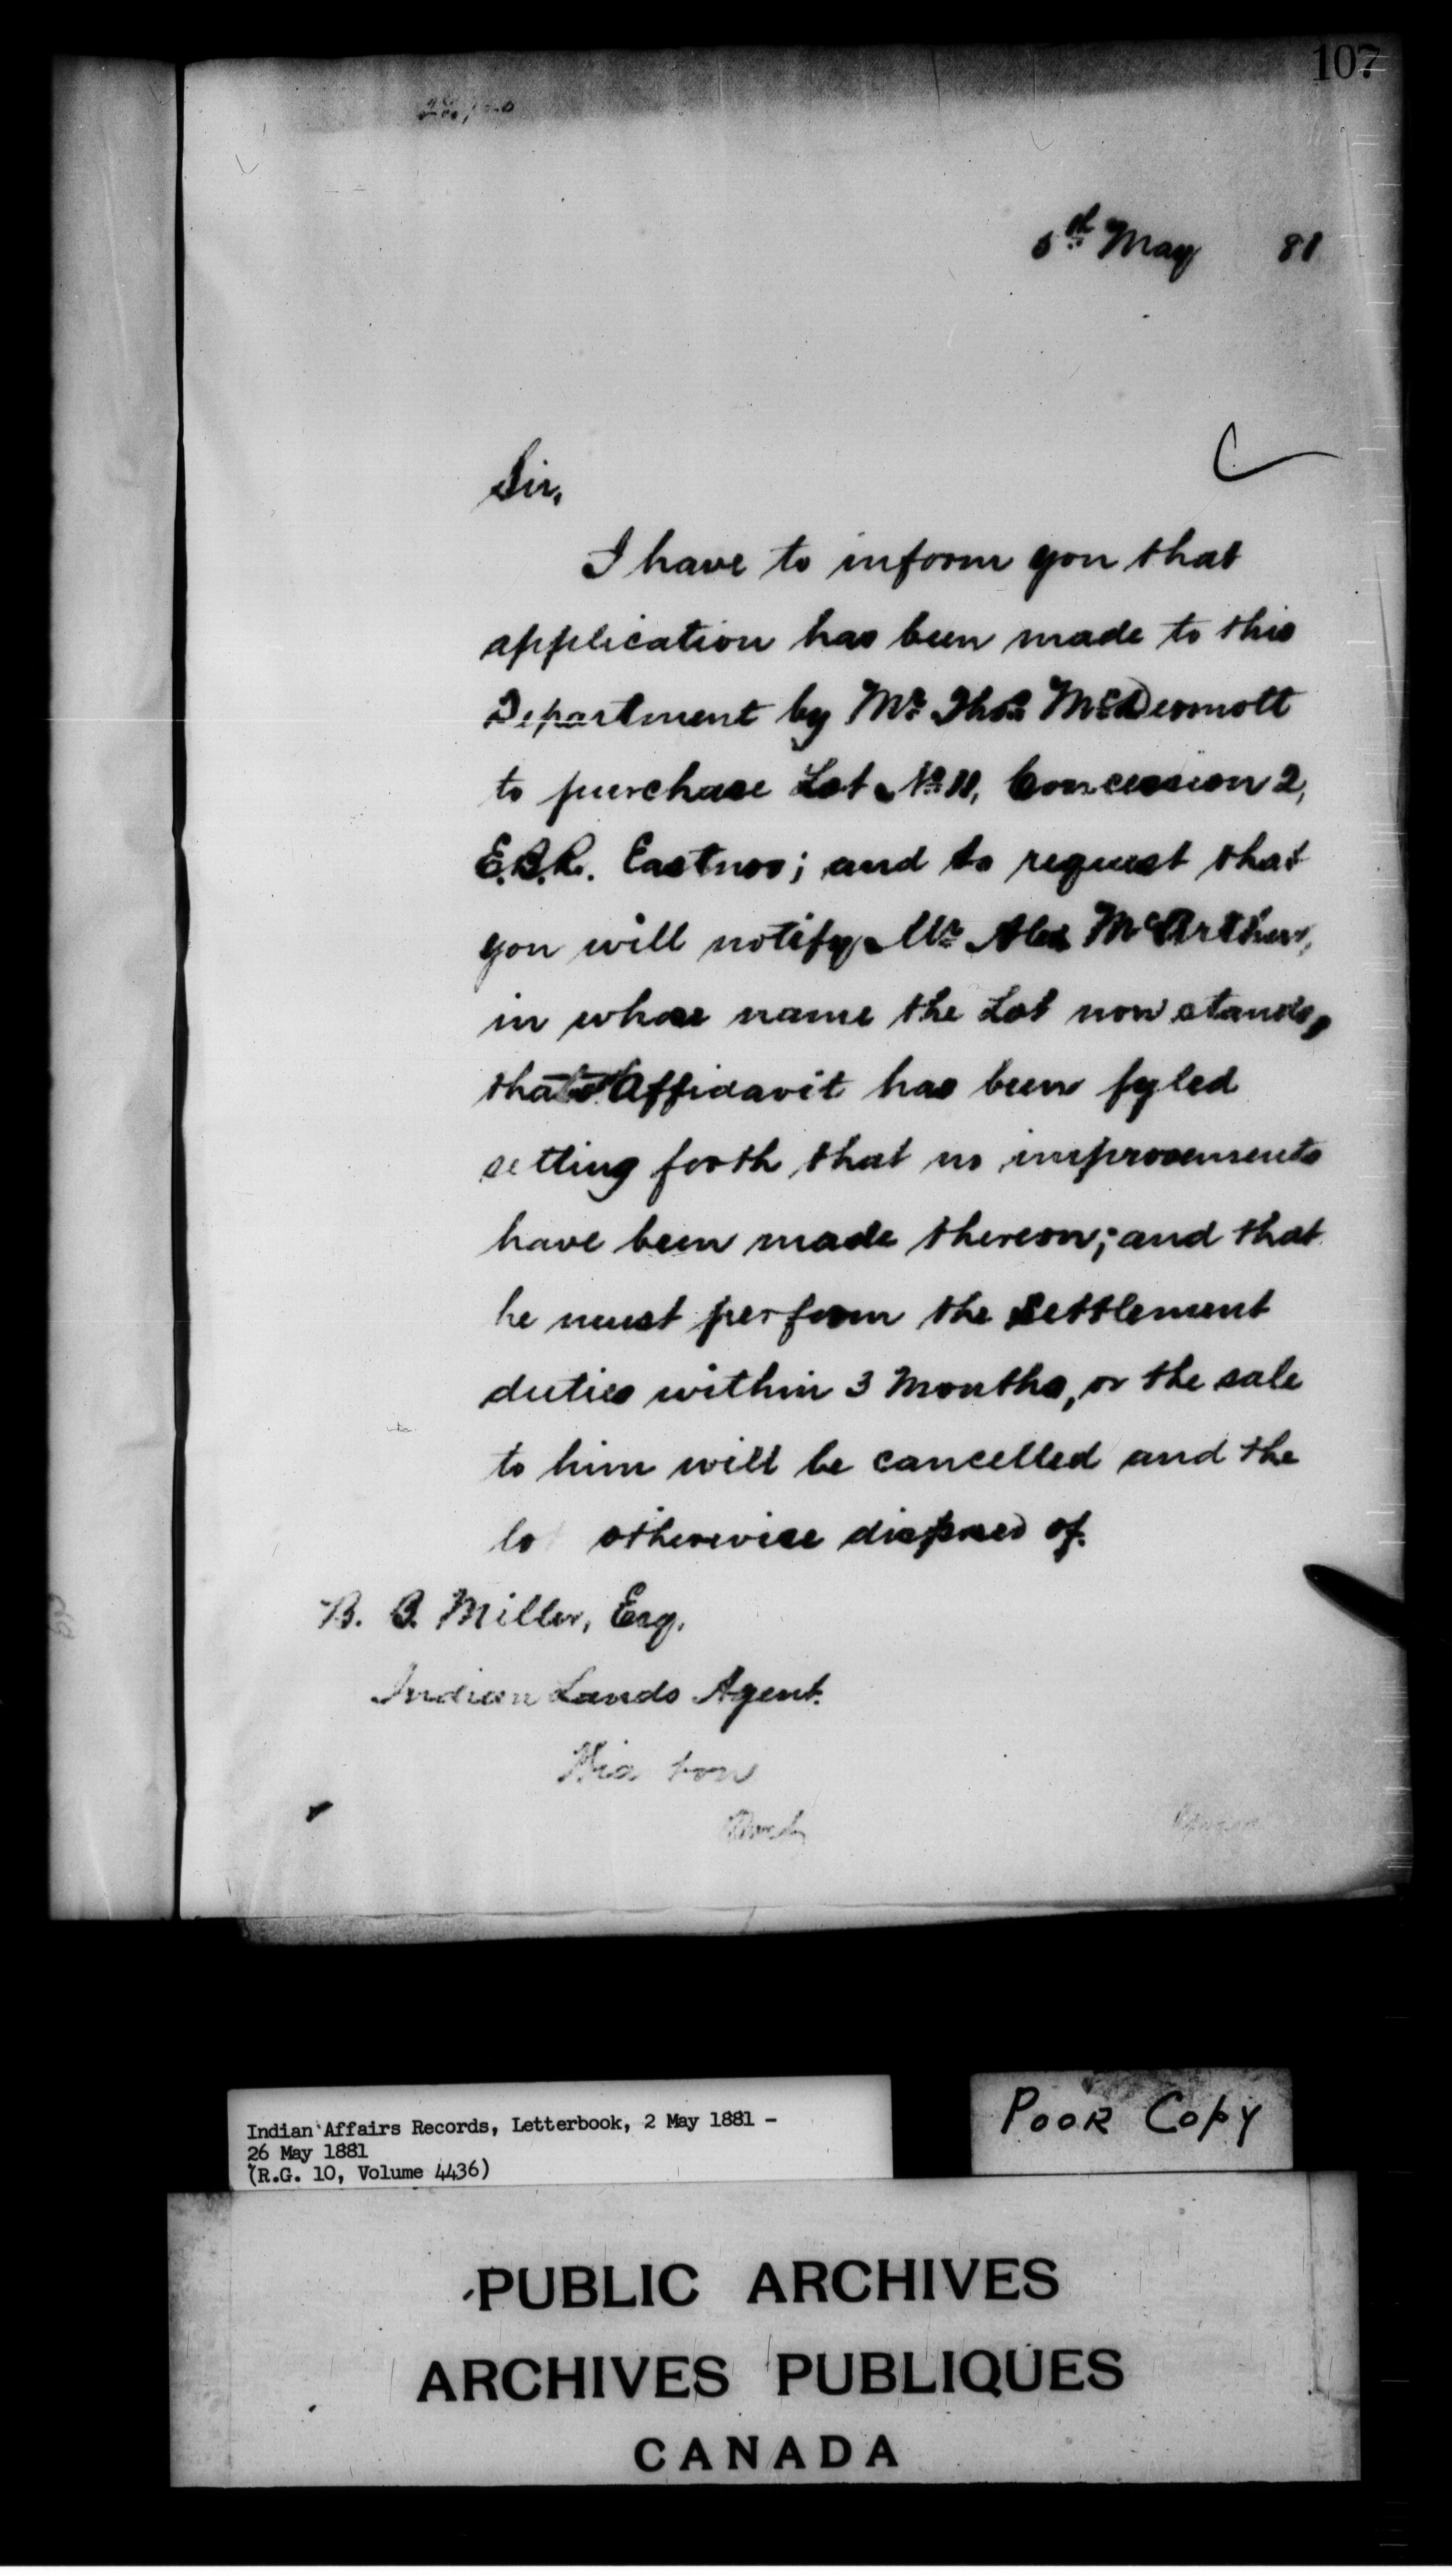 107
5th May 81
Sir,
I have to inform you that
application has been made to this
Department by Mr. Thos. McDermott
to purchase Lot No. 11, Concession 2,
E.B.R. Eastnor; and to request that
you will notify Mr Alex McArthur,
in whose name the Lot now stands,
that Affidavit has been fyled
setting forth that no improvements
have been made thereon; and that
he must perform the Settlement
duties within 3 Months, or the sale
to him will be cancelled and the
lo otherwise disposed of.
B. B. Miller, Esq.
Indian Lands Agent.
Wia ton
Indian Affairs Records, Letterbook, 2 May 1881 -
26 May 1881
(R.G. 10, Volume 4436)
POOR COPY
PUBLIC ARCHIVES
ARCHIVES PUBLIQUES
CANADA